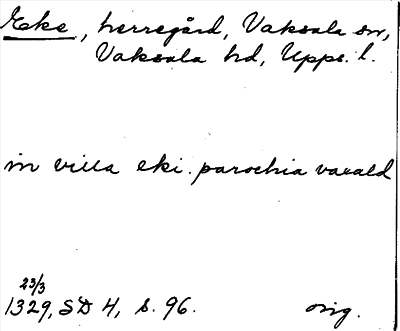 Eke, herregård, Vaksala sn,
Vaksala hd, Upps. l.
in villa eki. parochia vaxald
23/3
1329, SD 4, s. 96. orig.